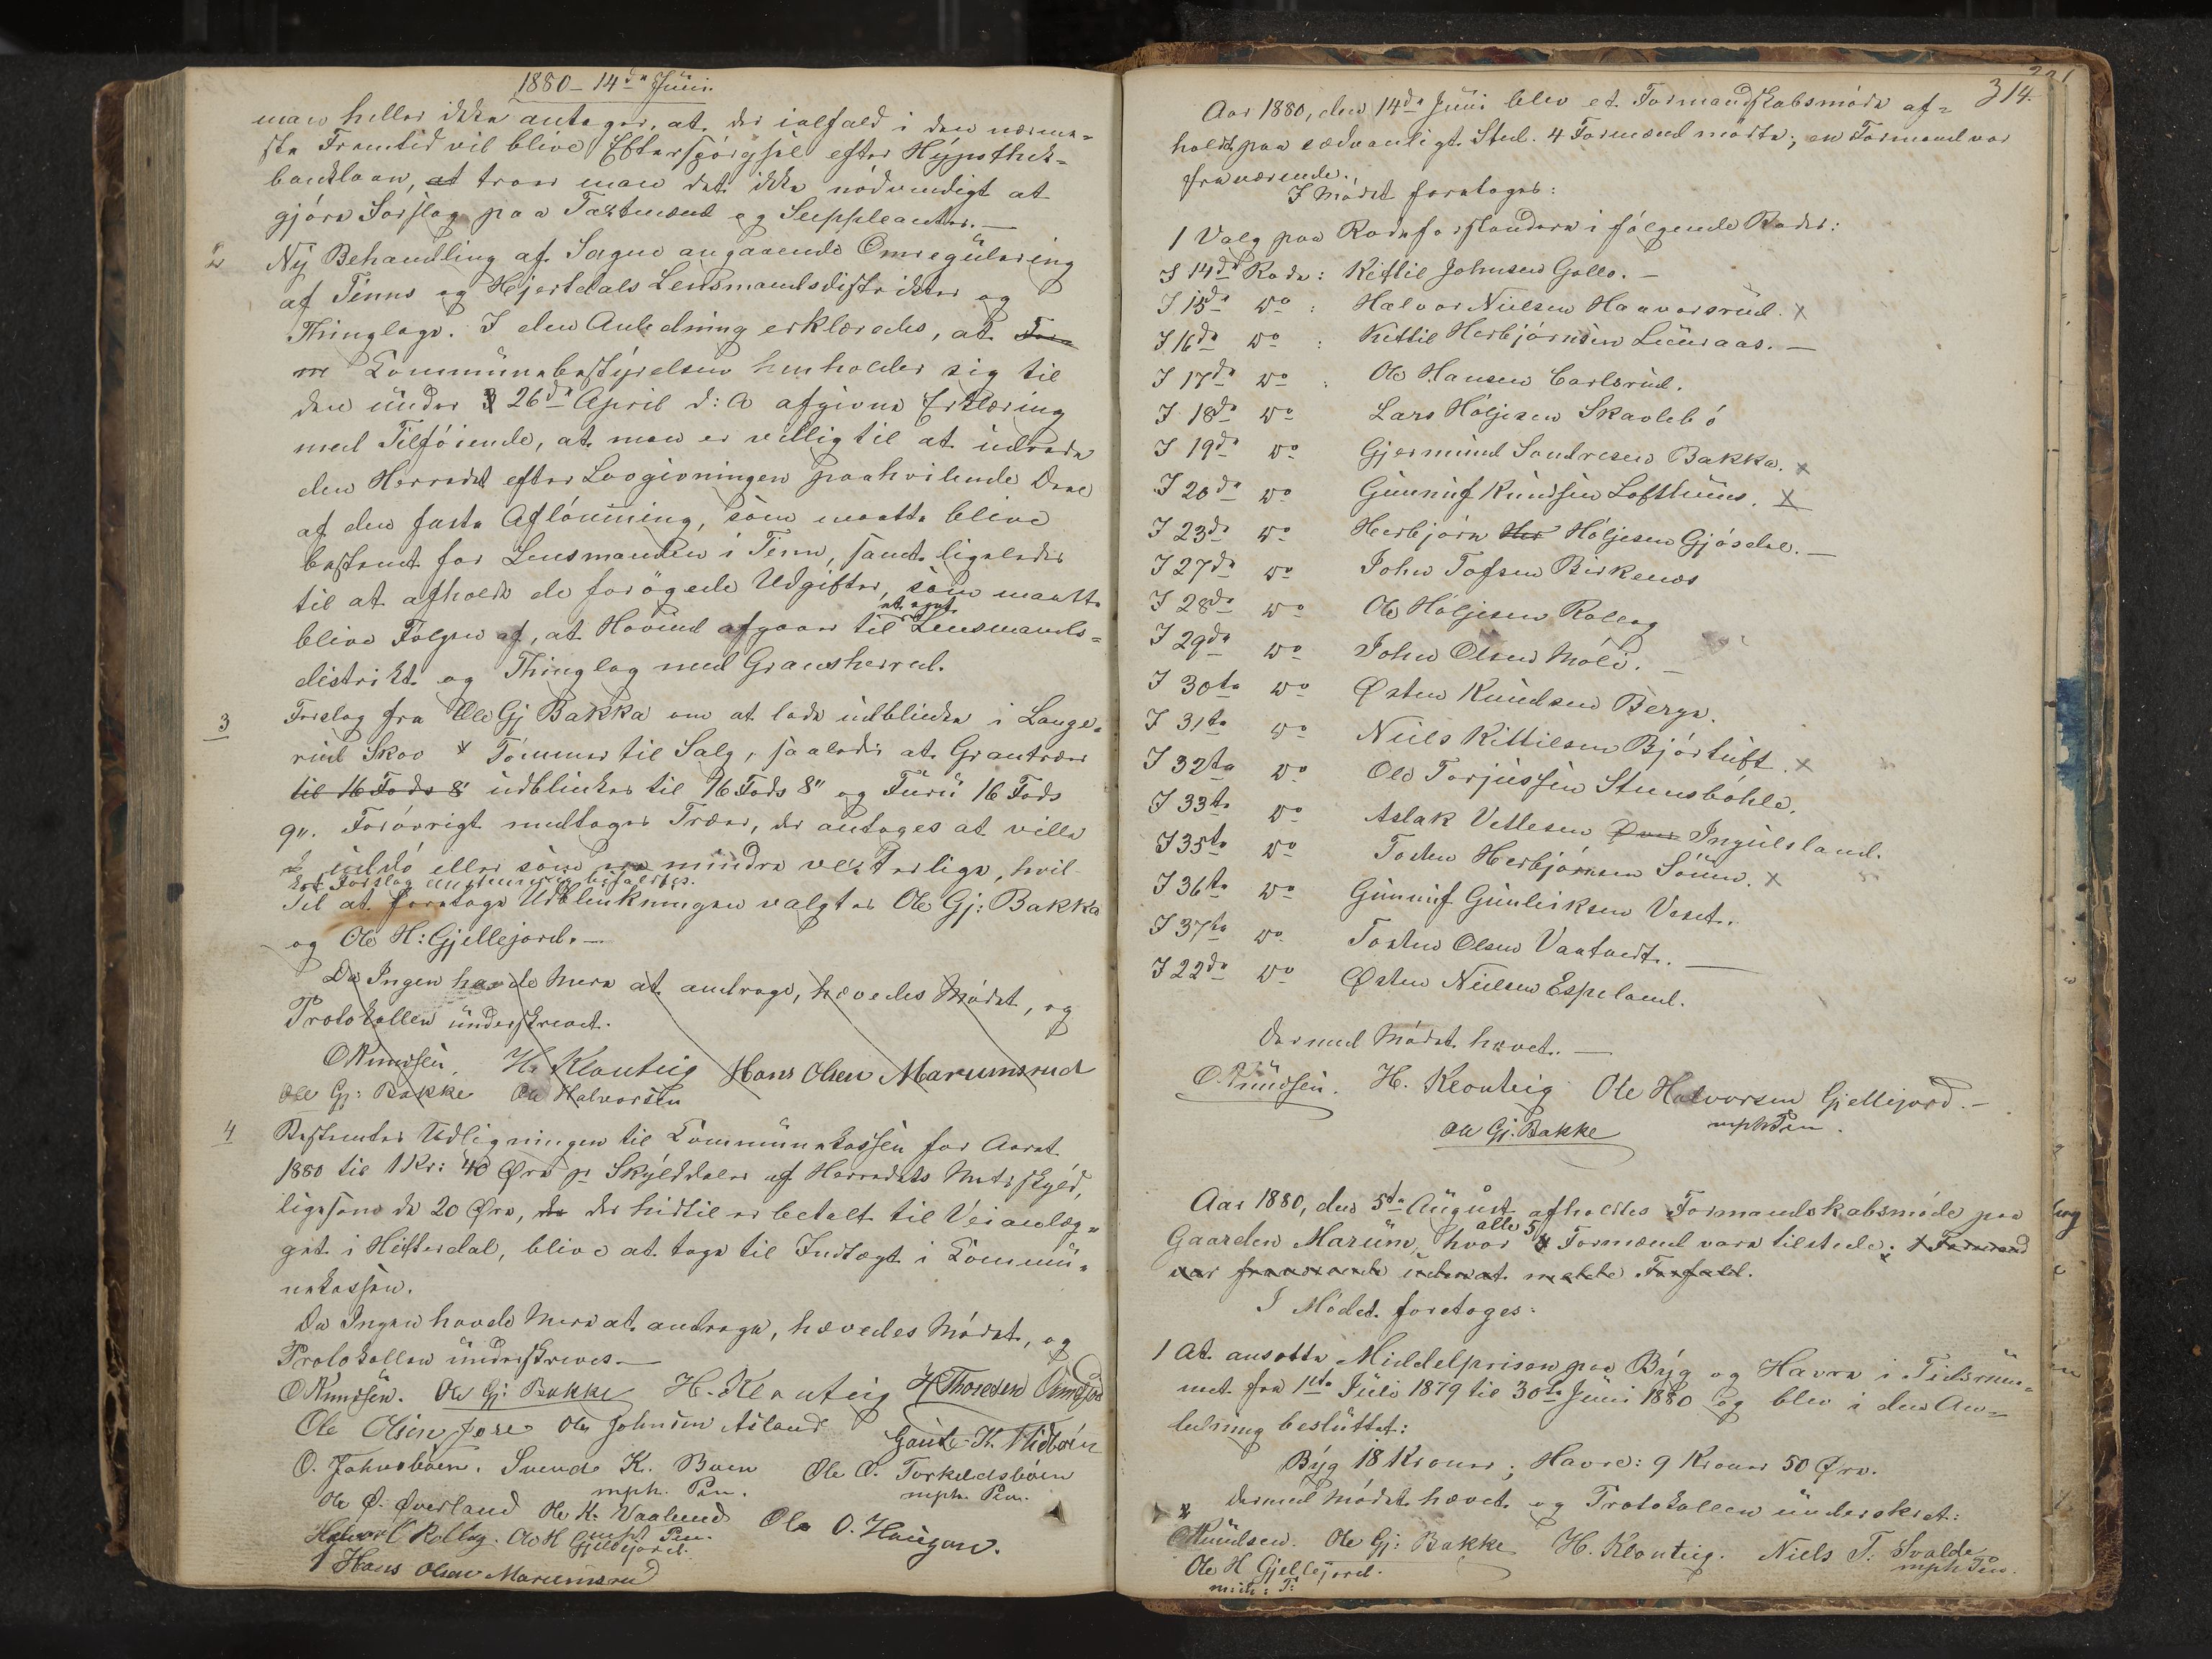 1880 – 14de Juni.
man heller ikke antager, at der ialfald i den nærme-
ste Fremtid vil blive Efterspørgsel efter Hypothek-
banklaan, at troer man det ikke nødvendigt at
gjøre Forslag paa Taxtmænd og Suppleanter. —
2 Ny Behandling af Sagen angaaende Omregulering
af Tinns og Hjertdals Lensmandsdistrikter og
Thinglage. I den Anledning erklæredes, at
Kommunebestyrelsen henholder sig til
den under 26de April d: A afgivne Erklæring
med Tilføiende, at man er villig til at udrede
den Herredet efter Lovgivningen paahvilende Deel
af den faste Aflønning, som maatte blive
bestemt for Lensmanden i Tinn, samt ligeledes
til at afholde de forøgede Udgifter, som maatte
blive Følgen af, at Hovind afgaar til et eget Lensmands-
distrikt og Thinglag med Gransherred.
3 Forslag fra Ole Gj Bakka om at lade udblinke i Lange-
rud Skov Tømmer til Salg, saaledes at Grantræer
til 16 Fods 8" udblinkes til 16 Fods 8" og Furu 16 Fods
9". Forøvrigt medtages Træer, der antages at ville
uddø eller som mindre vexterlige, hvil-
ket Forslag enstemmig bifaldtes.
Til at foretage Udblinkningen valgtes Ole Gj: Bakka
og Ole H: Gjellejord. —
Da Ingen havde Mere at andrage, hævedes Mødet, og
Protokollen underskrevet.
O Knudsen. H. Klonteig Hans Olsen Marumsrud
Ole Gj: Bakke Ole Halvorsen
4 Bestemtes Udligningen til Kommunekassen for Aaret
1880 til 1 Kr: 40 Øre pr Skylddaler af Herredets Matrskyld,
ligesom de 20 Øre, der hidtil er betalt til Veianlæg-
get i Hitterdal, blive at tage til Indtægt i Kommu-
nekassen.
Da Ingen havde Mere at andrage, hævedes Mødet, og
Protokollen underskreves. —
O Knudsen. Ole Gj: Bakke H. Klonteig H Thoresen
Ole Olsen Ole Johnsen Asland Gaute K.
O. Johnsbøen. Svend K. Boen Ole O. Torkeldsbøen
mph. Pen. mph. Pen.
Ole Ø. Øverland Ole K. Vaalund Ole O. Haugan.
mph Pen.
Rollag. Ole H Gjellejord.
Hans Olsen Marumsrud
314.
Aar 1880, den 14de Juni blev et Formandskabsmøde af-
holdt paa sædvanligt Sted. 4 Formænd mødte; en Formand var
fraværende.
I Mødet foretoges:
1 Valg paa Rodeforstandere i følgende Roder:
I 14de Rode: Kittil Johnsen Gollo. —
I 15de do : Halvor Nielsen Haavarsrud. x
I 16de do : Kittil Herbjørnsen Luraas. —
I 17de do : Ole Hansen Carlsrud.
I 18de do Lars Høljesen Skavlebø
I 19de do Gjermund Sondresen Bakka. x
I 20de do Gunnuf Knudsen Lofthuus. x
I 23de do Herbjørn Her Høljesen Gjøsdal. —
I 27de do John Tofsen Birkenes
I 28de do Ole Høljesen Rollag
I 29de do John Olsen Møli. —
I 30te do Østen Knudsen Berge.
I 31te do Niels Kittilsen Bjørtuft. x
I 32te do Ole Torjussen Steensbøhle.
I 33te do Aslak Vetlesen Ingulsland.
I 35te do Tosten Herbjørnsen Sønn. x
I 36te do Gunnuf Gunleiksen Vaset.
I 37te do Tosten Olsen Vaatvedt. —
I 22de do Østen Nielsen Espeland.
Dermed Mødet hævet. —
O. Knudsen. H. Klonteig Ole Halvorsen Gjellejord. —
Ole Gj. Bakke mph Pen.
Aar 1880, den 5te August afholdtes Formandskabsmøde paa
Gaarden Marum, hvor alle 5 Formænd vare tilstede. 1 Formand
var fraværende uden at melde Forfald.
I Mødet foretoges:
1 At ansætte Middelprisen paa Byg og Havre i Tidsrum-
met fra 1ste Juli 1879 til 30te Juni 1880 og blev i den An-
ledning besluttet:
Byg 18 Kroner; Havre: 9 Kroner 50 Øre.
Dermed Mødet hævet og Protokollen underskret:
O Knudsen. Ole Gj: Bakke H. Klonteig. Niels T: Svalde
mph Pen.
Ole H Gjellejord.